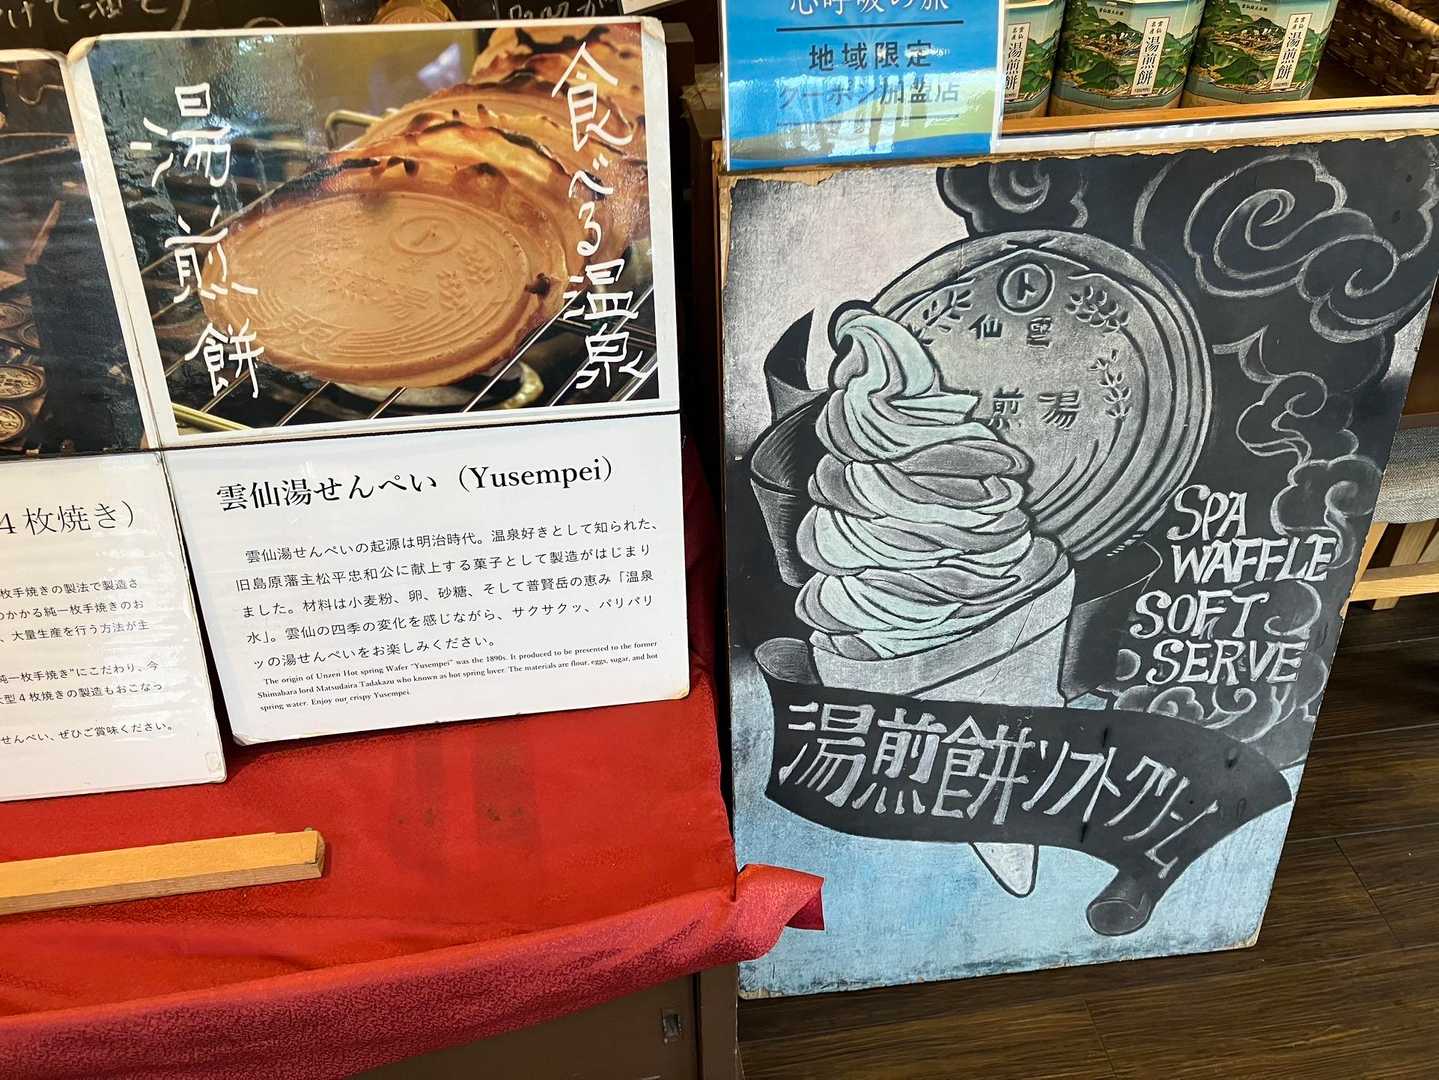 食べる温泉
湯煎餅
雲仙湯せんぺい（Yusempei）
雲仙湯せんぺいの起源は明治時代。温泉好きとして知られた、
旧島原藩主松平忠和公に献上する菓子として製造がはじまり
ました。材料は小麦粉、卵、砂糖、そして普賢岳の恵み「温泉
水」。雲仙の四季の変化を感じながら、サクサクッ、パリパリ
ッの湯せんぺいをお楽しみください。
The origin of Unzen Hot spring Wafer "Yusempei" was the 1890s. It produced to be presented to the former
Shimabara lord Matsudaira Tadakazu who known as hot spring lover. The materials are flour, eggs, sugar, and hot
spring water. Enjoy our crispy Yusempei.
4枚焼き）
枚手焼きの製法で製造さ
かかる純一枚手焼きのお
、大量生産を行う方法が主
純一枚手焼き"にこだわり、今
大型4枚焼きの製造もおこなっ
せんぺい、ぜひご賞味ください。
心呼吸の旅
地域限定
クーポン加盟店
湯煎餅
湯煎餅
湯煎餅
ト
仙雲
煎湯
SPA
WAFFLE
SOFT
SERVE
湯煎餅ソフトクリーム